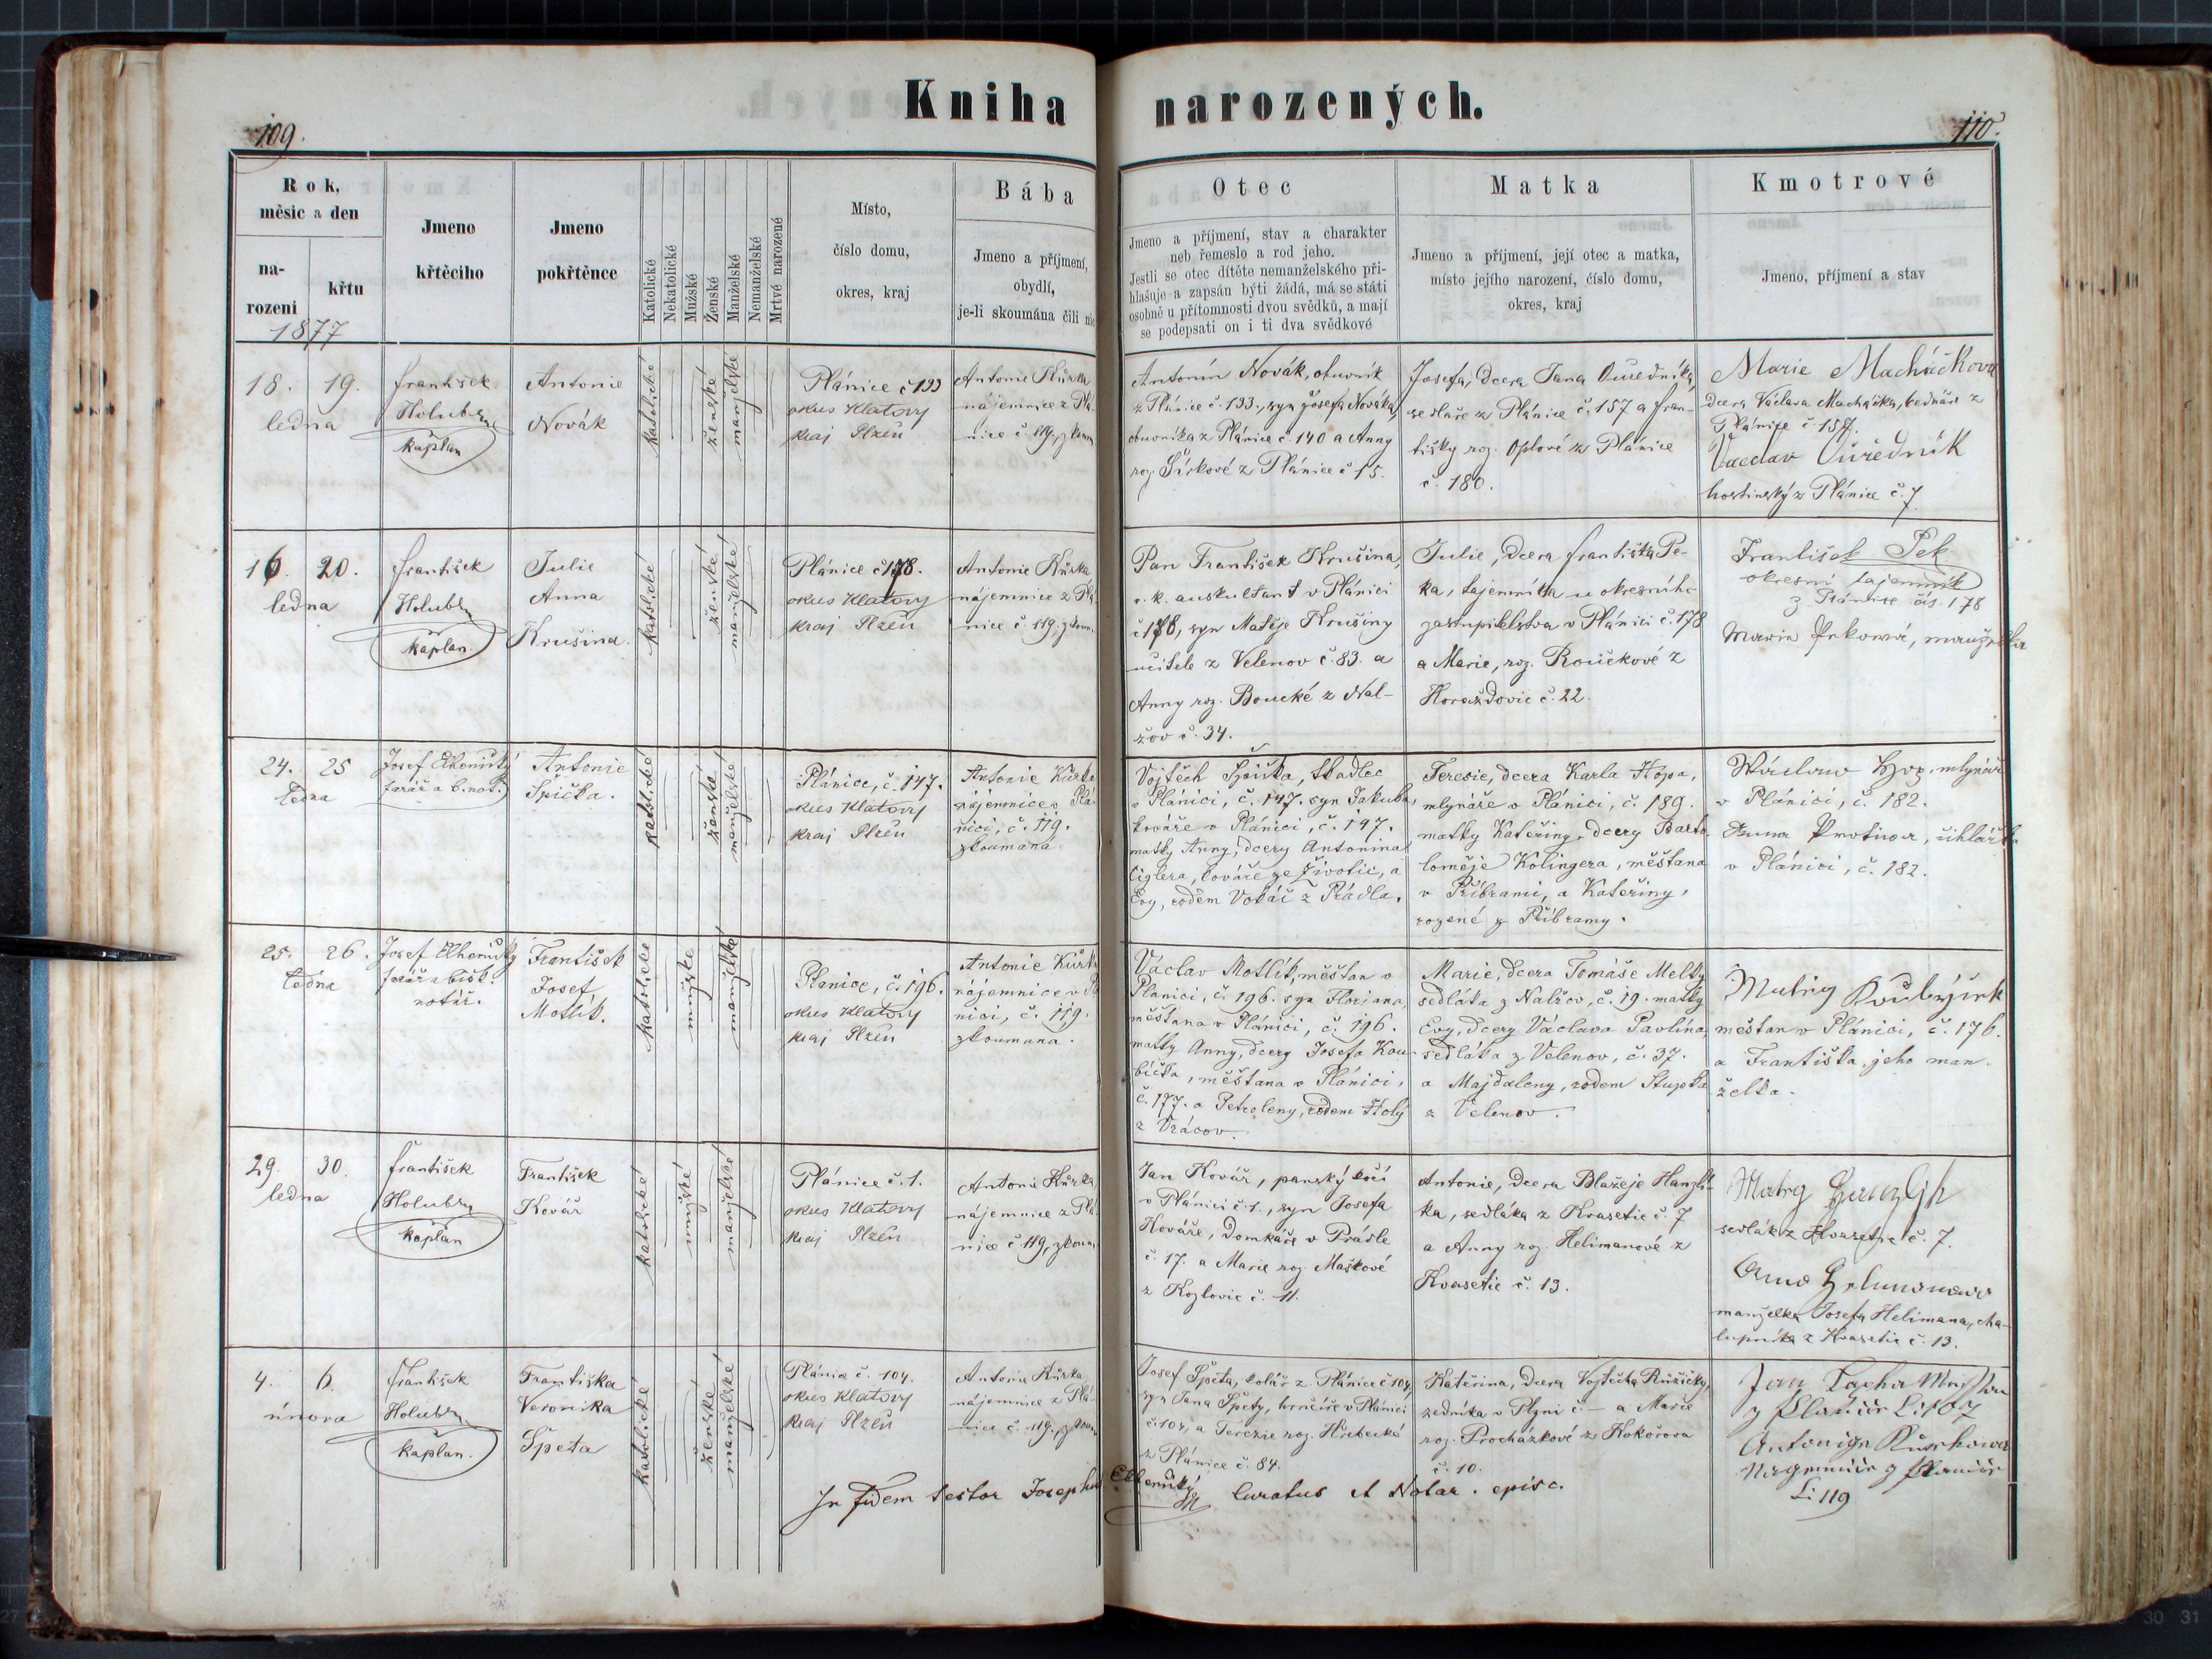 Kniha narozených.
109.
110.
Rok,
měsic a den
na-
rozeni
křtu
1877
Jmeno
křtěciho
Jmeno
pokřtěnce
Katolické
Nekatolické
Mužské
Ženské
Manželské
Nemanželské
Mrtvé narozené
Místo,
číslo domu,
okres, kraj
Bába
Jmeno a příjmení,
obydlí,
je-li skoumána čili
Otec
Jmeno a příjmení, stav a charakter
neb řemeslo a rod jeho.
Jestli se otec dítěte nemanželského při-
hlašuje a zapsán býti žádá, má se státi
osobně u přítomnosti dvou svědků, a mají
se podepsati on i ti dva svědkové
Matka
Jmeno a příjmení, její otec a matka,
místo jejího narození, číslo domu,
okres, kraj
Kmotrové
Jmeno, příjmení a stav
18. 19.
ledna
František
Holub
kaplan
Antonie
Novák
katolické
ženské
manželské
Plánice č 133
okres Klatovy
kraj Plzeň
Antonie Kůrka
nájemnice z Plá-
nice č. 119,
Antonín Novák, obuvník
z Plánice č. 133, syn Josefa Nováka,
obuvníka z Plánice č. 140 a Anny
roz. Šírkové z Plánice č 15.
Josefa, dcera Jana Ouředníka,
sedláře z Plánice č. 157 a Fran-
tišky roz. z Plánice
č. 180.
Marie Macháčkova
dcera Václava Macháčka, bednáře z
Plánice č. 157.
Vaclav Ouředník
hostinský z Plánice č. 7
16. 20.
ledna
František
Holub
kaplan.
Julie
Anna
Krušina.
katolické
ženské
manželské
Plánice č 178.
okres Klatovy
kraj Plzeň
Antonie Kůrka
nájemnice z Plá-
nice č. 119,
Pan František Krušina,
c. k. auskultant v Plánici
č 178, syn Matěje Krušiny
učitele z Velenov č. 83. a
Anny roz. Boucké z Nal-
žov č. 34.
Julie, dcera Františka Pe-
ka, tajemníka u okresního
zastupitelstva v Plánici č. 178
a Marie, roz. Roučkové z
Horažďovic č. 22.
František Pek
okresní tajemník
z Plánice čís. 178
Marie Peková, manželka
24. 25
ledna
Josef Elhenický
farář a b. not.
Antonie
Špička.
katolické
ženské
manželské
Plánice, č. 147.
okres Klatovy
kraj Plzeň
Antonie Kůrka
nájemnice v Plá-
nici, č. 119.
zkoumána.
Vojtěch Špička, tkadlec
v Plánici, č. 147. syn Jakuba,
kováře v Plánici, č. 147.
matky Anny, dcery Antonína
Ciglera, kováře ze Životic, a
Evy, rodem Voháč z Prádla.
Teresie, dcera Karla Hopa,
mlynáře v Plánici, č. 189.
matky Kateřiny, dcery Barto-
loměje Kolingera, měšťana
v Příbrami, a Kateřiny,
rozené z Příbramy.
Hop, mlynář
v Plánici, č. 182.
Anna
v Plánici, č. 182.
25. 26.
ledna
Josef Elhenický
farář a bisk.
notář.
František
Josef
Motlík.
katolické
mužské
manželské
Plánice, č. 196.
okres Klatovy
kraj Plzeň
Antonie Kůrka
nájemnice v Plá-
nici, č. 119.
zkoumána.
Václav Motlík, měšťan v
Plánici, č. 196. syn Floriana,
měšťana v Plánici, č. 196.
matky Anny, dcery Josefa Kou-
bíčka, měšťana v Plánici,
č. 177. a Petroleny, rodem Holý
z Vrácov.
Marie, dcera Tomáše Melky
sedláka z Nalžov, č. 19. matky
Evy, dcery Václava Pavlína,
sedláka z Velenov, č. 37.
a Majdaleny, rodem Stupka
z Velenov.
měšťan v Plánici, č. 176.
a Františka, jeho man-
želka.
29. 30.
ledna
František
Holub
kaplan
František
Kovář
katolické
mužské
manželské
Plánice č. 1.
okres Klatovy
kraj Plzeň
Antonie Kůrka,
nájemnice z Plá-
nice č. 119,
Jan Kovář, panský kočí
v Plánici č. 1., syn Josefa
Kováře, domkáře v Prádle
č. 17. a Marie roz. Maškové
z Kozlovic č. 11.
Antonie, dcera Blažeje Hanzlí-
ka, sedláka z Kvasetic č. 7
a Anny roz. Helimanové z
Kvasetic č. 13.
sedlák z Kvasetic č. 7.
manželka Josefa Helimana, cha-
lupníka z Kvasetic č. 13.
4. 6.
února
František
Holub
kaplan.
Františka
Veronika
Špeta
katolické
ženské
manželské
Plánice č. 104.
okres Klatovy
kraj Plzeň
Antonie Kůrka
nájemnice z Plá-
nice č. 119,
Josef Špeta, kolář z Plánice č 104,
syn Jana Špety, hrnčíře v Plánici
č. 104, a Terezie roz. Hřebecké
z Plánice č. 84.
Kateřina, dcera Vojtěcha Růžičky,
zedníka v Plzni č. — a Marie
roz. Procházkové z Kokořova
č. 10.
Jan
119
In fidem testor Josephus Elhenický Curatus et Notar. episc.